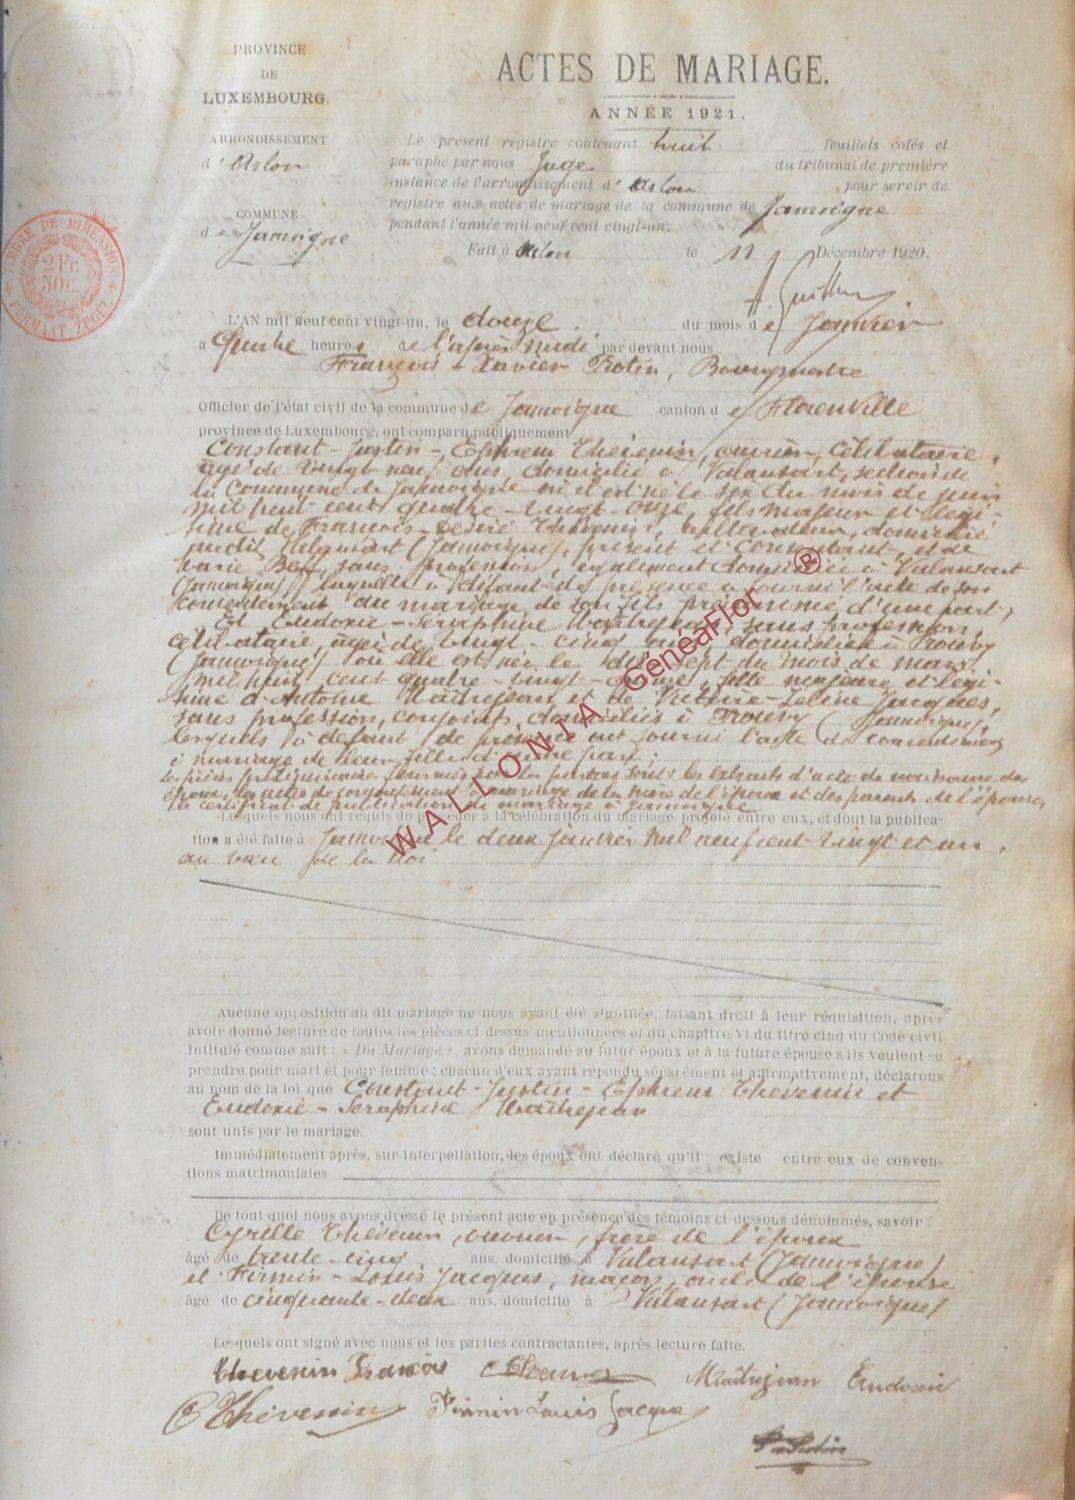 PROVINCE
DE
LUXEMBOURG.
ARRONDISSEMENT
d'Arlon
COMMUNE
de Jamoigne
TIMBRE DE DIMENSION
2 Fr.
50 c.
FORMAAT ZEGEL
ACTES DE MARIAGE.
ANNÉE 1921.
Le présent registre contenant huit feuillets cotés et
paraphé par nous Juge du tribunal de première
instance de l'arrondissement d'Arlon, pour servir de
registre aux actes de mariage de la commune de Jamoigne
pendant l'année mil neuf cent vingt-un.
Fait à Arlon le 11 Décembre 1920.
L'AN mil neuf cent vingt-un, le douze du mois de Janvier
à Quatre heures de l'après midi par devant nous
François-Xavier Protin, Bourgmestre
Officier de l'état civil de la commune de Jamoigne canton de Florenville
province de Luxembourg, ont comparu publiquement
Constant-Justin-Ephrem Thévenin, ouvrier, célibataire,
âgé de vingt neuf ans, domicilié à Valansart, section de
la Commune de Jamoigne où il est né le six du mois de juin
mil huit cent quatre-vingt-onze, fils majeur et légi-
time de François-Désiré Thévenin, cultivateur, domicilié
audit Valansart (Jamoigne), présent et consentant, et de
Marie sans profession, également domiciliée à Valansart
(Jamoigne) laquelle à défaut de présence a fourni l'acte de son
consentement au mariage de son fils prénommé, d'une part;
Et Eudoxie-Séraphine Maîtrejean, sans profession,
célibataire, âgée de vingt-cinq ans, domiciliée à Prouvy
(Jamoigne) où elle est née le dix sept du mois de mars
mil huit cent quatre-vingt- fille majeure et légi-
time d'Antoine Maîtrejean et de Zéline Jacques,
sans profession, conjoints, domiciliés à Prouvy (Jamoigne),
lesquels à défaut de présence ont fourni l'acte de consentement
à mariage de leur fille d'autre part;
Les pièces préliminaires fournies par les parties sont: les extraits d'acte de naissance des
époux, les actes de consentement à mariage de la mère de l'époux et des parents de l'épouse,
le certificat de publication de mariage à Jamoigne
Lesquels nous ont requis de procéder à la célébration du mariage projeté entre eux, et dont la publica-
tion a été faite à Jamoigne le deux Janvier mil neuf cent vingt et un,
au vœu de la loi
Aucune opposition au dit mariage ne nous ayant été signifiée, faisant droit à leur réquisition, après
avoir donné lecture de toutes les pièces ci-dessus mentionnées et du chapitre VI du titre cinq du Code civil
intitulé comme suit : « Du Mariage », avons demandé au futur époux et à la future épouse s'ils veulent se
prendre pour mari et pour femme : chacun d'eux ayant répondu séparément et affirmativement, déclarons
au nom de la loi que Constant-Justin-Ephrem Thévenin et
Eudoxie-Séraphine Maîtrejean
sont unis par le mariage.
Immédiatement après, sur interpellation, les époux ont déclaré qu'il existe entre eux de conven-
tions matrimoniales
De tout quoi nous avons dressé le présent acte en présence des témoins ci-dessous dénommés, savoir :
Cyrille Thévenin, ouvrier, frère de l'époux
âgé de trente-cinq ans, domicilié à Valansart (Jamoigne)
et Firmin-Louis Jacques, maçon, oncle de l'épouse
âgé de cinquante-deux ans, domicilié à Valansart (Jamoigne)
Lesquels ont signé avec nous et les parties contractantes, après lecture faite.
Thevenin François Maîtrejean Eudoxie
C Thévenin Firmin Louis Jacques
WALLONIA GénéaFlor ®